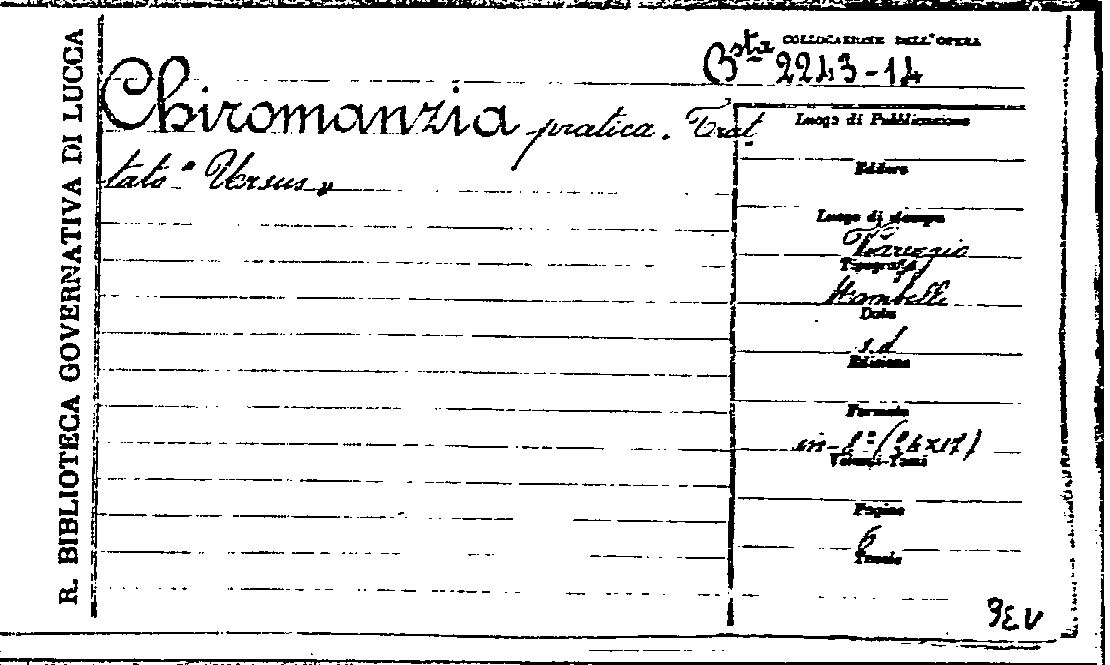 R. BIBLIOTECA GOVERNATIVA DI LUCCA
COLLOCAZIONE DELL'OPERA
Bsta 2243-14
Chiromanzia pratica. Trat
tato "Versus"
Luogo di Pubblicazione
Editore
Luogo di stampa
Viareggio
Tipografia
Data
s.d
Edizione
Formato
in-8° (24x17)
Volumi-Tomi
Pagine
6
Tavole